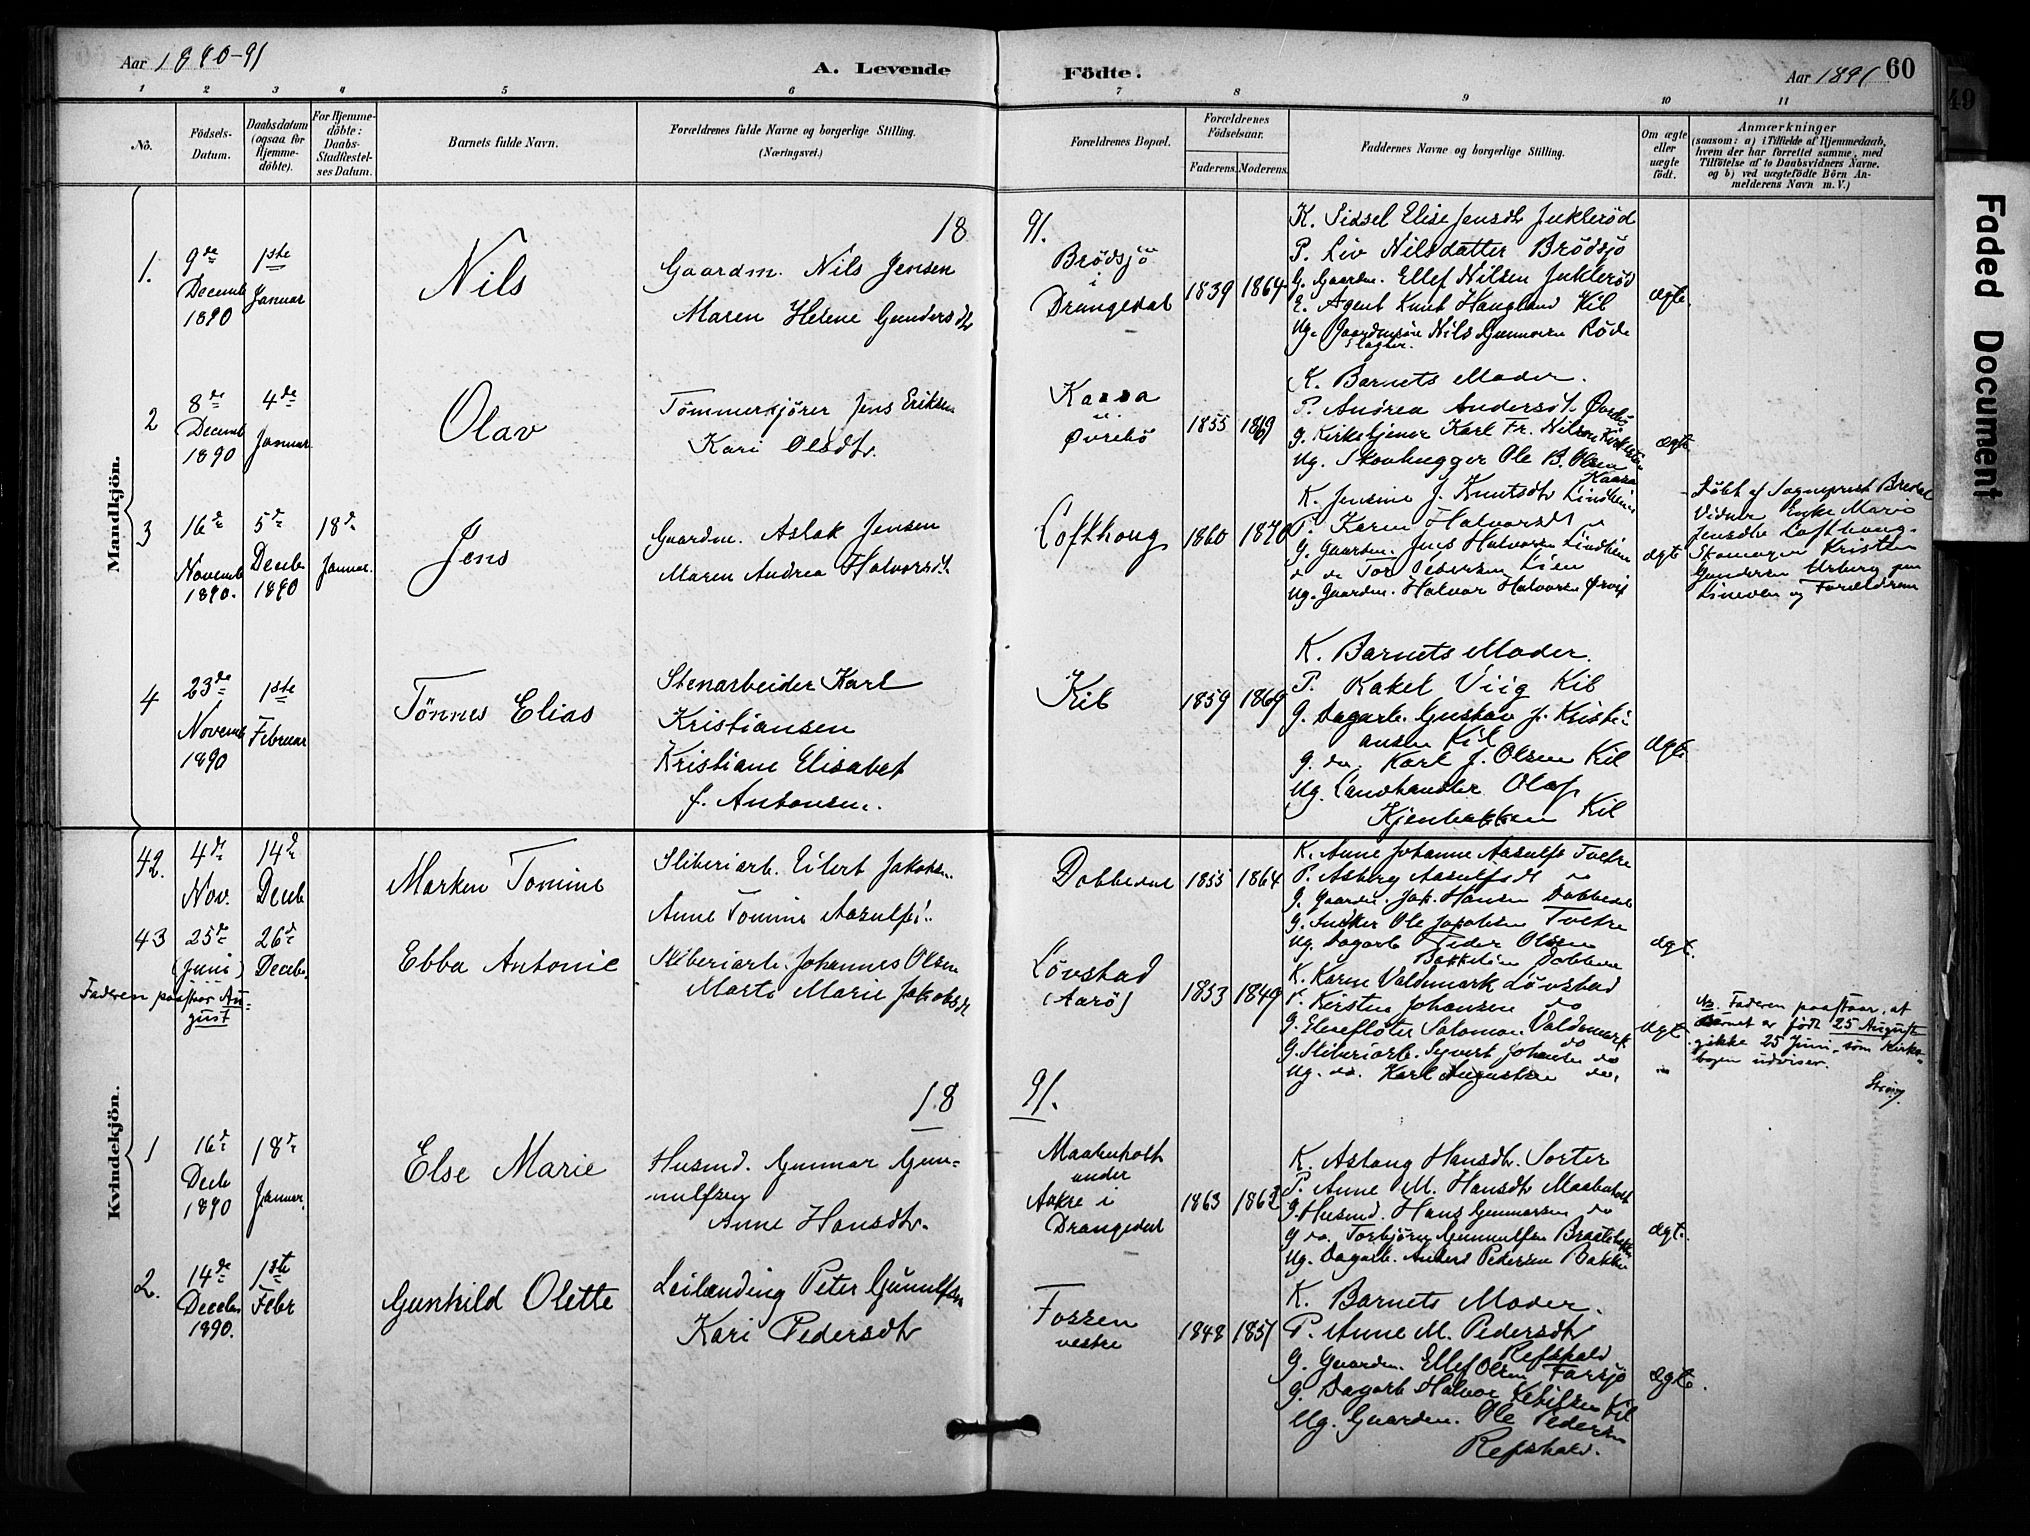 Aar 1890-91
A. Levende
Födte.
Aar 1891
60
49
1 2 3 4 5 6 7 8 9 10 11
No.
Födsels-Datum.
Daabsdatum (ogsaa for Hjemmedöbte).
For Hjemmedöbte: Daabs-Stadfestelses Datum.
Barnets fulde Navn.
Forældrenes fulde Navne og borgerlige Stilling.
(Næringsvei.)
Forældrenes Bopæl.
Forældrenes Födselsaar.
Faderens. Moderens.
Faddernes Navne og borgerlige Stilling.
Om ægte eller uægte födt.
Anmærkninger
(saasom: a) i Tilfælde af Hjemmedaab,
hvem der har forrettet samme, med
Tilföielse af to Daabsvidners Navne.
og b) ved uægtefödte Börn Anmelderens Navn m. V.)
Mandkjön.
18 91.
1.
9de Decemb 1890
1ste Januar
Nils
Gaardm. Nils Jensen
Maren Helene Gundersdtr
Brødsjø
i
Drangedal
1839 1864
K. Sidsel Elise Jensdtr Juklerød
P. Liv Nilsdatter Brødsjø
G. Gaardm. Ellef Nilsen Juklerød
E. Agent Knut Haugland Kil
Ug. Gaardmsøn Nils Gunnarsen Røde
ægte.
2
8de Decemb 1890
4de Januar
Olav
Tømmerkjører Jens Eriksen
Kari Olsdtr.
Kaasa
u.
Øvrebø
1855 1869
K. Barnets Moder.
P. Andrea Andersdt. Øvrebø
G. Kirketjener Karl Fr. Nilsen
Ug. Skovhugger Ole B. Olsen
Kaasa
ægte
3
16de Novemb 1890.
5de Decbr 1890
18de Januar.
Jens
Gaardm. Aslak Jensen
Maren Andrea Halvorsdt.
Lofthoug
1860 1870
K. Jensine J. Knutsdtr Lindheim
P. Karen Halvorsdt
G. Gaardm. Jens Halvorsen Lindheim
do do Tor Pedersen Lien
Ug. Gaardm. Halvor Halvorsen Ørvig
ægte
Døbt af Sogneprest Bredal
Vidner Enke Maria
Jensdtr Lofthoug.
Skomager Kristen
Gundersen Urberg paa
og Forældrene
4
23de Novemb 1890
1ste Februar
Tønnes Elias
Stenarbeider Karl
Kristiansen
Kristiane Elisabet
f. Antonsen.
Kil
1859 1869
K. Barnets Moder.
P. Rakel Viig Kil
G. Dagarb. Gustav J. Kristi-
ansen Kil
G. do. Karl J. Olsen Kil
Ug. Landhandler Olaf
Kjenbakken Kil
ægte
Kvindekjön.
42.
4de Nov.
14de Decbr
Marken Tomine
Sliberiarb. Eilert Jakobsen.
Anne Tomine Aasulfs.
Dobbedal
1855 1864
K. Anne Johanne Aasulfs Tveitre
P. Asberg Aasulfsdt do
G. Gaardm. Jak. Hansen Dobbedal
G. Snedker Ole Jakobsen
Ug. Dagarb Peder Olsen
ægt.
43
25de (Juni)
Faderen paastaar Au-
gust
26de Decbr.
Ebba Antonie
Sliberiarb. Johannes Olsen
Marte Marie Jakobsdt
Løvstad
(Aarø)
1853 1849
K. Karen Valdemark Løvstad
P. Kirsten Johansen do
G. Elvefløter Salomon Valdemark
do
G. Sliberiarb. Syvert Johansen do
Ug. do. Karl Augustsen do.
ægt.
NB. Faderen paastaar, at
Barnet er født 25 August
ikke 25 Juni, som Kirke-
bogen udviser.
Strøm.
18 91.
1
16de Decb 1890
18de Januar.
Else Marie
Husmd. Gunnar Gun-
nulfsen
Anne Hansdtr.
Maabuholt
under
Aakre i
Drangedal
1863 1862
K. Aslaug Hansdtr. Sorter
P. Anne M. Hansdtr Maabuholt
G. Husmd. Hans Gunnarsen do
G do. Torbjørn Gunnulfsen
Ug. Dagarb. Anders Pedersen Bakke
ægt.
2.
14de Decebr 1890.
1ste Febr
Gunhild Olette
Leilænding Peter Gunulfsen
Kari Pedersdtr
Fossen
vestre
1848 1851
K. Barnets Moder.
P. Anne M. Pedersdtr
Refshald
G. Gaardm. Ellef Olsen Farsjø
G. Dagarb Halvor Ketilsen Kil
Ug. Gaardm. Ole Pedersen
Refshald.
ægte.
Faded Document